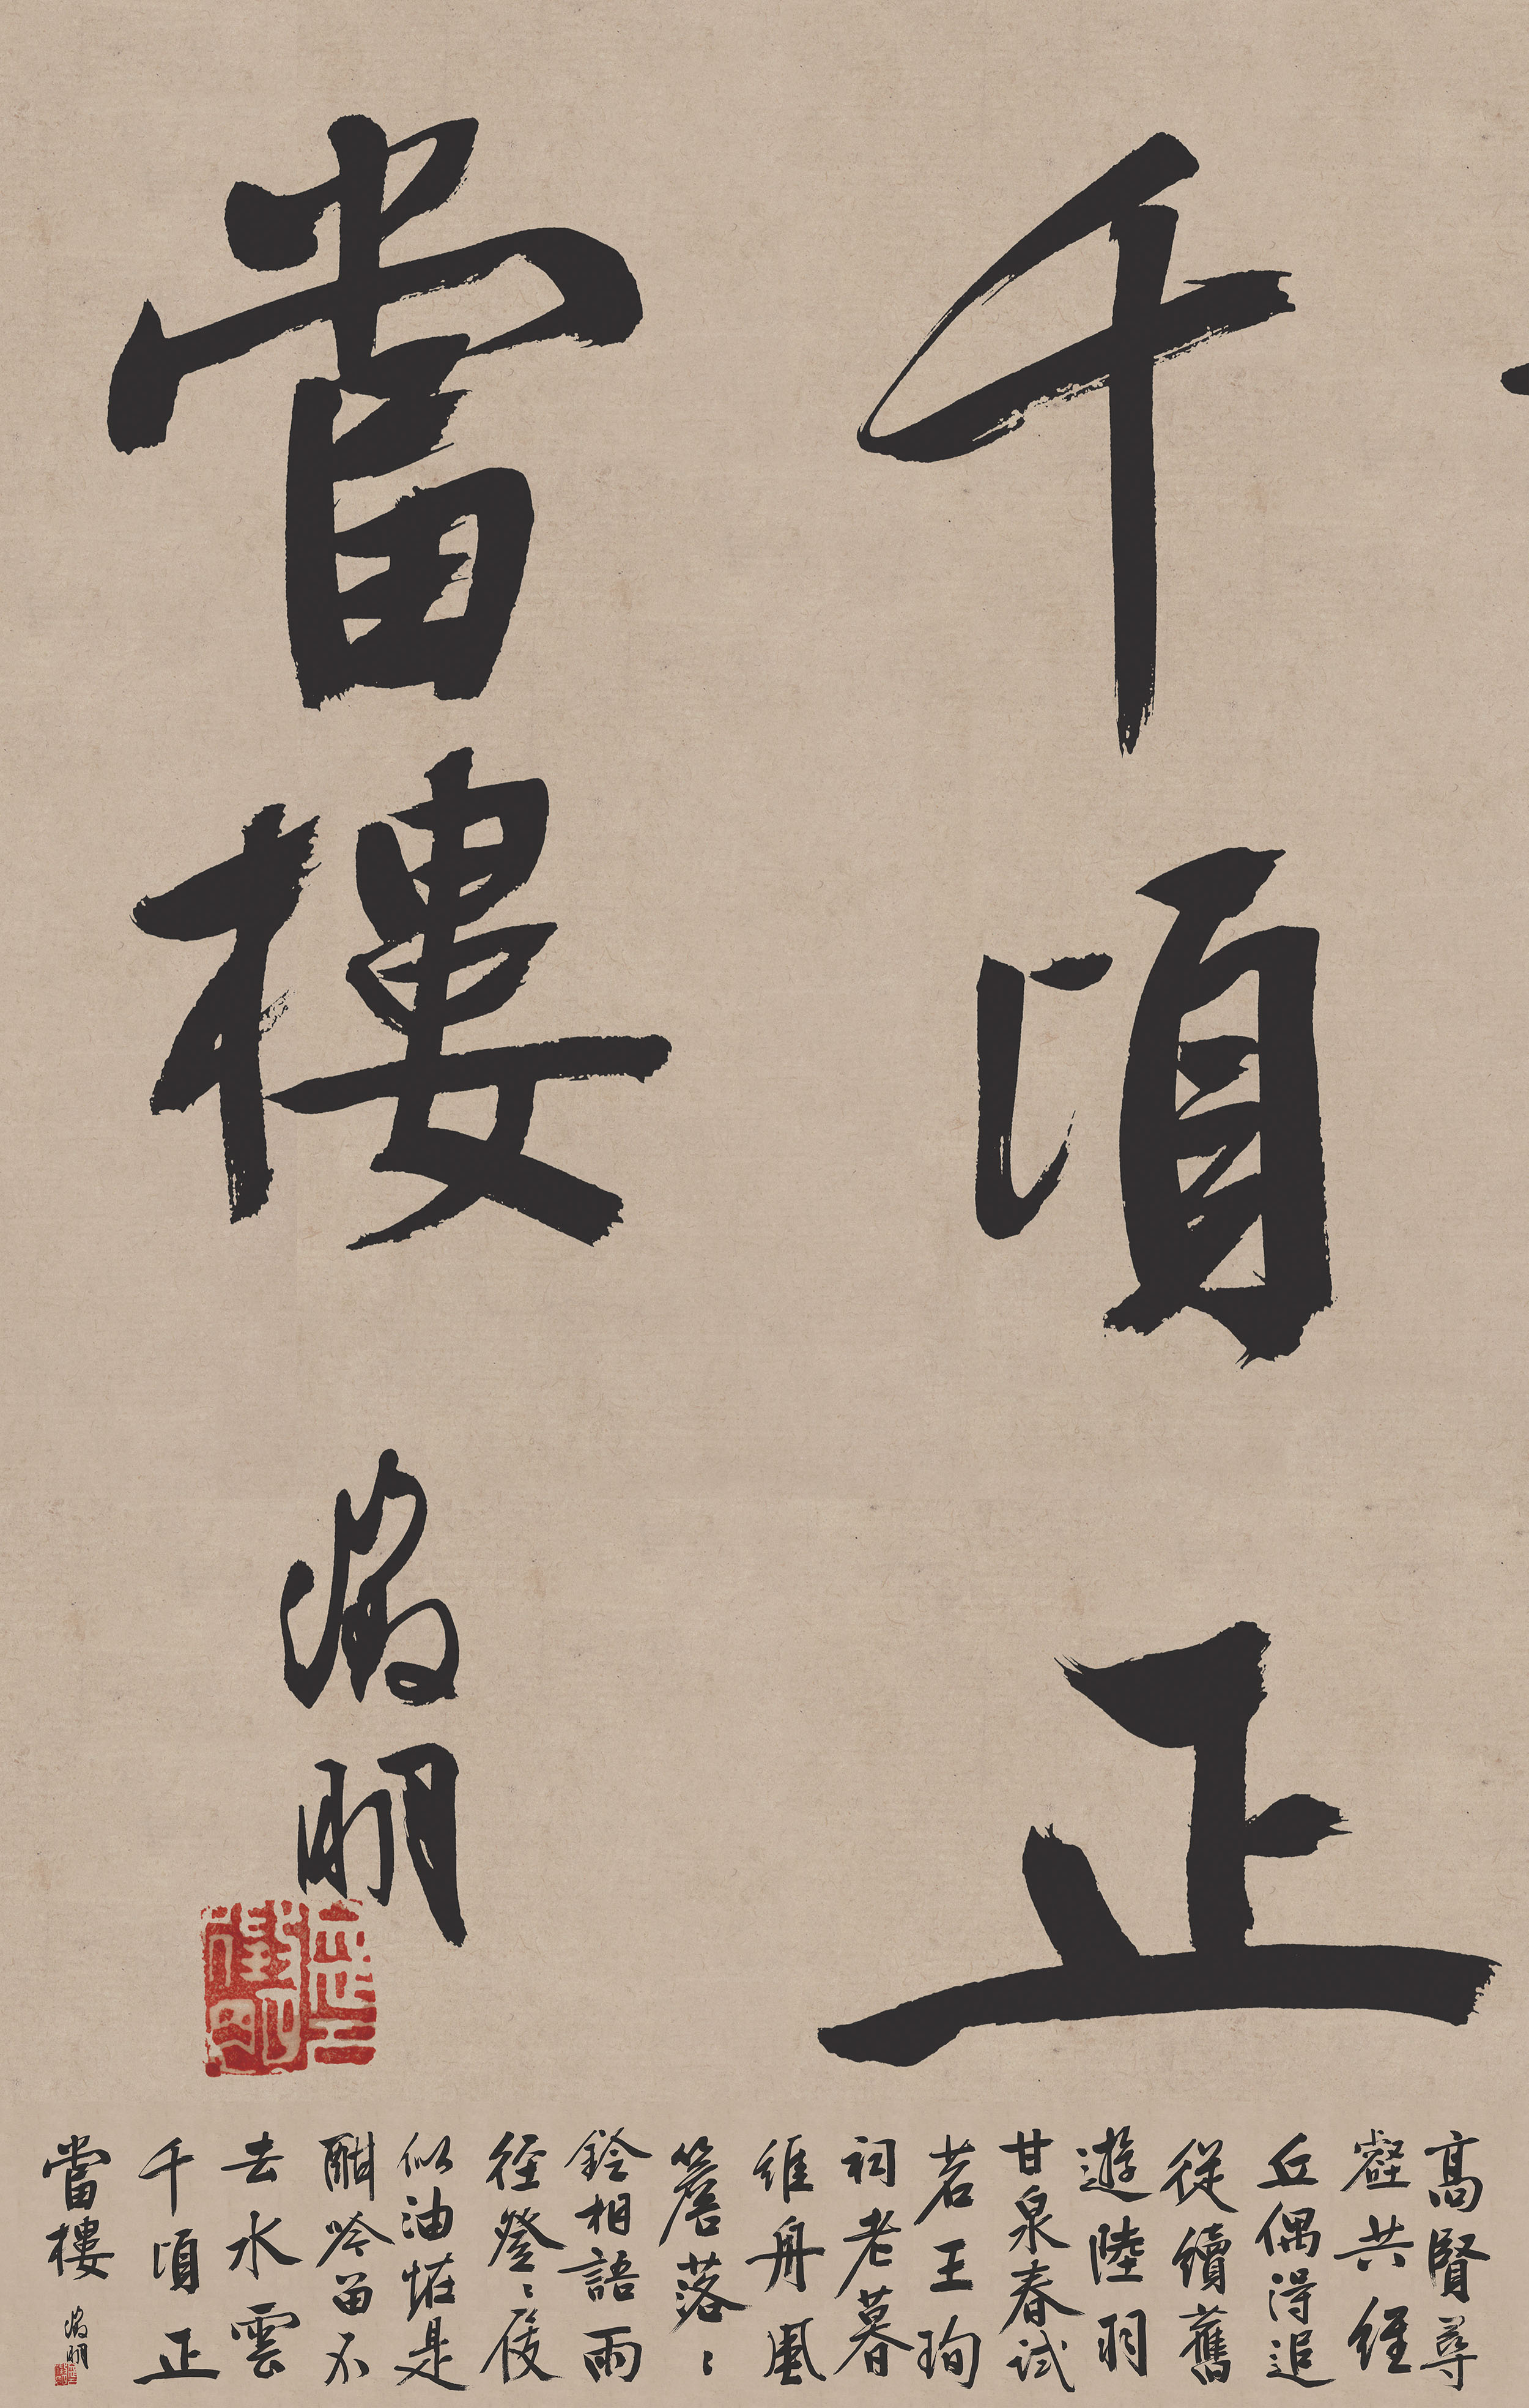 千頃正
當樓
徵明
高賢尋
壑共經
丘偶得追
從續舊
遊陸羽
甘泉春試
茗王珣
祠老暮
維舟風
簷落〻
鈴相語雨
徑登〻屐
似油恠是
酣吟留不
去水雲
千頃正
當樓
徵明